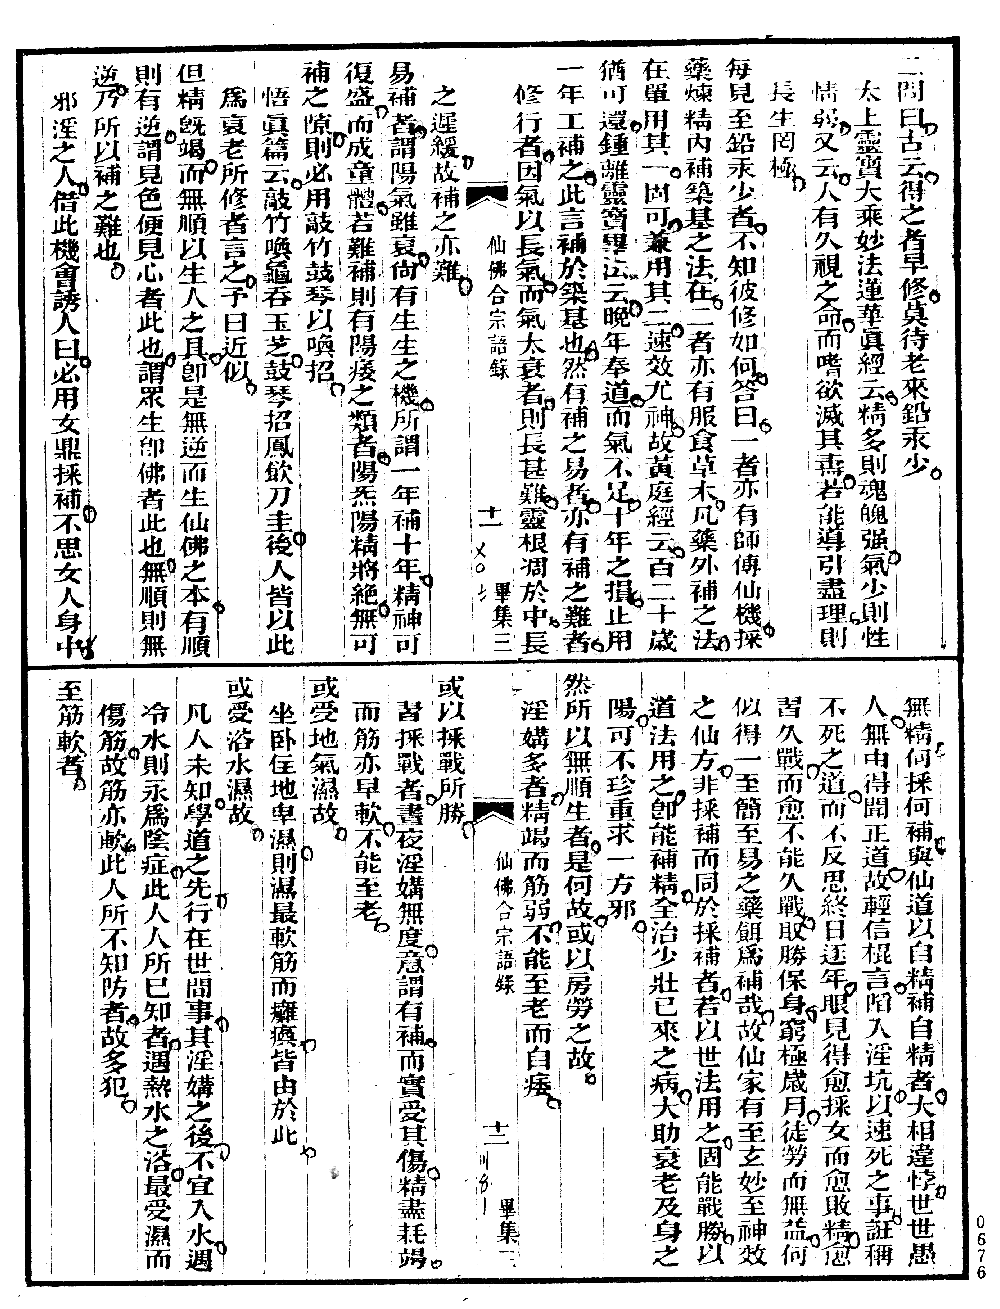 二問曰古云得之者早修莫待老來鉛汞少
太上靈寶大乘妙法蓮華眞經云精多則魂魄强氣少則性
情弱又云人有久視之命而嗜欲滅其壽若能導引盡理則
長生罔極
每見至鉛汞少者不知彼修如何答曰一者亦有師傳仙機採
藥煉精內補築基之法在二者亦有服食草木凡藥外補之法
在單用其一固可兼用其二速效尤神故黃庭經云百二十歲
猶可還鍾離靈寶畢法云晚年奉道而氣不足十年之損止用
一年工補之此言補於築基也然有補之易者亦有補之難者
修行者因氣以長氣而氣太衰者則長甚難靈根凋於中長
仙佛合宗語錄
十一
畢集三
之遲緩故補之亦難
易補者謂陽氣雖衰尚有生生之機所謂一年補十年精神可
復盛而成童體若難補則有陽痿之類者陽炁陽精將絕無可
補之隙則必用敲竹鼓琴以喚招
悟眞篇云敲竹喚龜吞玉芝鼓琴招鳳飲刀圭後人皆以此
爲衰老所修者言之予曰近似
但精既竭而無順以生人之具卽是無逆而生仙佛之本有順
則有逆謂見色便見心者此也謂眾生卽佛者此也無順則無
逆乃所以補之難也
邪淫之人借此機會誘人曰必用女鼎採補不思女人身中
無精何採何補與仙道以自精補自精者大相違悖世世愚
人無由得聞正道故輕信棍言陷入淫坑以速死之事誑稱
不死之道而不反思終日迄年眼見得愈採女而愈敗精愈
習久戰而愈不能久戰取勝保身窮極歲月徒勞而無益何
似得一至簡至易之藥餌爲補哉故仙家有至玄妙至神效
之仙方非採補而同於採補者若以世法用之固能戰勝以
道法用之卽能補精全治少壯已來之病大助衰老及身之
陽可不珍重求一方邪
然所以無順生者是何故或以房勞之故
淫媾多者精竭而筋弱不能至老而自痿
仙佛合宗語錄
十二
畢集
或以採戰所勝
習採戰者晝夜淫媾無度意謂有補而實受其傷精盡耗竭
而筋亦早軟不能至老
或受地氣濕故
坐卧住地卑濕則濕最軟筋而癱瘓皆由於此
或受浴水濕故
凡人未知學道之先行在世間事其淫媾之後不宜入水遇
冷水則永爲陰症此人人所已知者遇熱水之浴最受濕而
傷筋故筋亦軟此人所不知防者故多犯
至筋軟者
0676